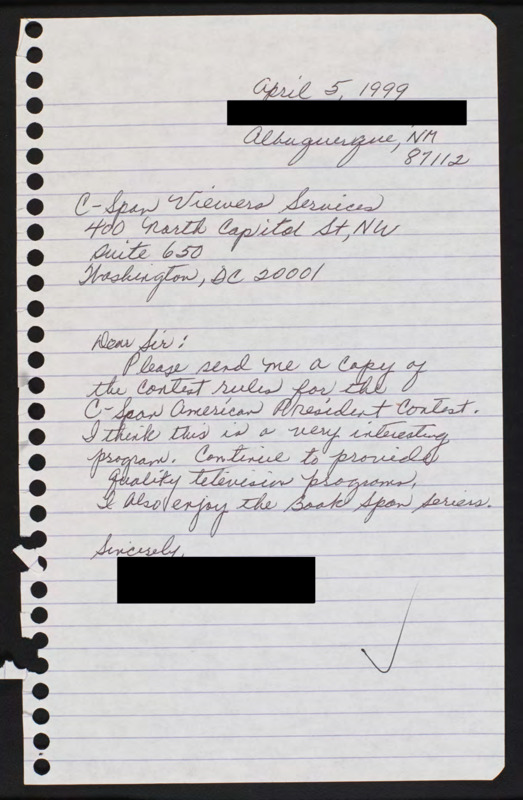 April 5, 1999
Albuquerque, NM
87112
C-Span Viewers Services
400 North Capitol St, NW
Suite 650
Washington, DC 20001
Dear Sir:
Please send me a copy of
the contest rules for the
C-Span American President Contest.
I think this is a very interesting
program. Continue to provide
quality television programs,
I also enjoy the Book Span seriers.
Sincerely,